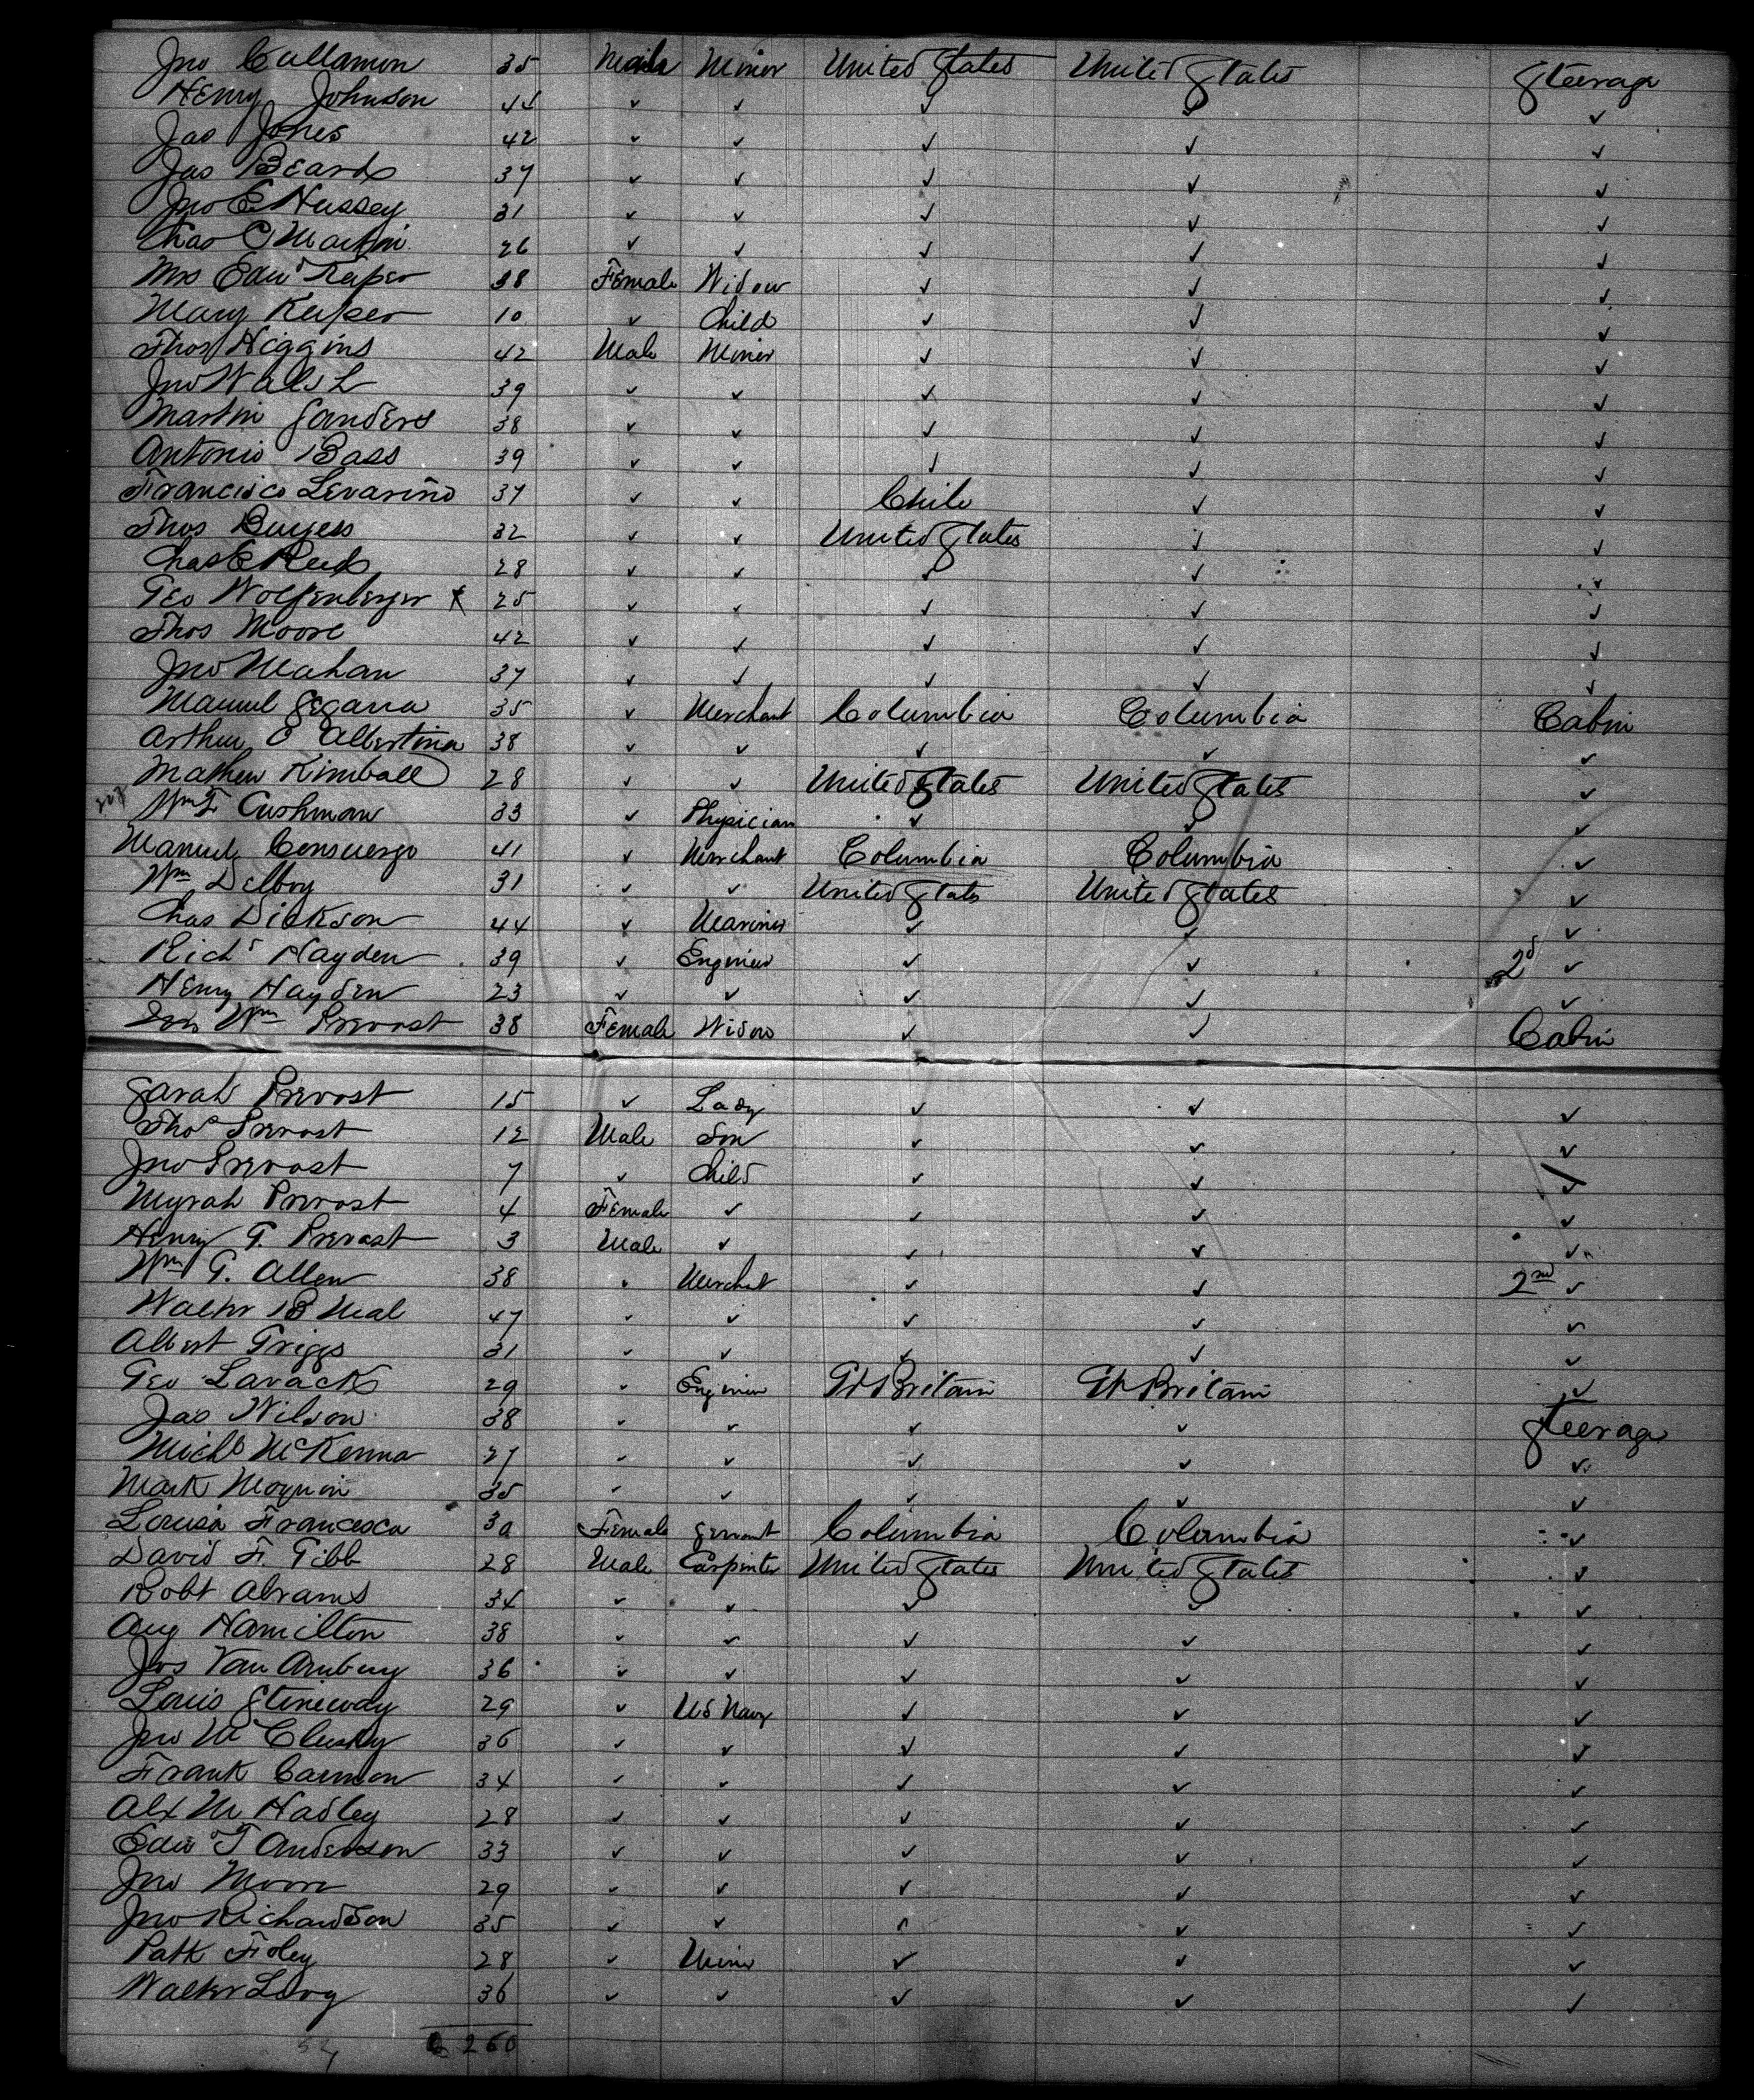 Jno Cullamon 35 Male Miner United States United States Steerage
Henry Johnson 44 ✓ ✓ ✓ ✓ ✓
Jas Jones 42 ✓ ✓ ✓ ✓ ✓
Jas Beard 37 ✓ ✓ ✓ ✓ ✓
Jno E Hussey 31 ✓ ✓ ✓ ✓ ✓
Chas C Martin 26 ✓ ✓ ✓ ✓ ✓
Mrs Edwd Keper 38 Female Widow ✓ ✓ ✓
Mary Keper 10 ✓ Child ✓ ✓ ✓
Thos Higgins 42 Male Miner ✓ ✓ ✓
Jno Walsh 39 ✓ ✓ ✓ ✓ ✓
Martin Sanders 38 ✓ ✓ ✓ ✓ ✓
Antonio Bass 39 ✓ ✓ ✓ ✓ ✓
Francisco Levarino 37 ✓ ✓ Chile ✓ ✓
Thos Burgess 32 ✓ ✓ United States ✓ ✓
Chas E Reed 28 ✓ ✓ ✓ ✓ ✓
Geo Wolfenberger 25 ✓ ✓ ✓ ✓ ✓
Thos Moore 42 ✓ ✓ ✓ ✓ ✓
Jno Mahan 37 ✓ ✓ ✓ ✓ ✓
Manuel Segarra 35 ✓ Merchant Columbia Columbia Cabin
Arthur C Albertina 38 ✓ ✓ ✓ ✓ ✓
Mathew Kimball 28 ✓ ✓ United States United States ✓
Wm F Cushman 33 ✓ Physician ✓ ✓ ✓
Manuel Consuergo 41 ✓ Merchant Columbia Columbia ✓
Wm Delboy 31 ✓ ✓ United States United States ✓
Chas Dickson 44 ✓ Mariner ✓ ✓ ✓
Richd Hayden 39 ✓ Engineer ✓ ✓ 2d ✓
Henry Hayden 23 ✓ ✓ ✓ ✓ ✓
Wm Prevost 38 Female Widow ✓ ✓ Cabin
Sarah Prevost 15 ✓ Lady ✓ ✓ ✓
Thos Prevost 12 Male Son ✓ ✓ ✓
Jno Prevost 7 ✓ Child ✓ ✓ ✓
Myrah Prevost 4 Female ✓ ✓ ✓ ✓
Henry G. Prevost 3 Male ✓ ✓ ✓ ✓
Wm G. Allen 38 ✓ Merchat ✓ ✓ 2nd ✓
Walter B Neal 47 ✓ ✓ ✓ ✓ ✓
Albert Griggs 31 ✓ ✓ ✓ ✓ ✓
Geo Lavack 29 ✓ Engineer Gt Britain Gt Britain ✓
Jas Wilson 38 ✓ ✓ ✓ ✓ Steerage
Michl McKenna 27 ✓ ✓ ✓ ✓ ✓
Mark Moynin 35 ✓ ✓ ✓ ✓ ✓
Louisa Francesca 30 Female Servant Columbia Columbia ✓
David F. Gibb 28 Male Carpenter United States United States ✓
Robt Abrams 34 ✓ ✓ ✓ ✓ ✓
Aug Hamilton 38 ✓ ✓ ✓ ✓ ✓
Jos Van Amburg 36 ✓ ✓ ✓ ✓ ✓
Louis Steneway 29 ✓ US Navy ✓ ✓ ✓
Jno McClusky 36 ✓ ✓ ✓ ✓ ✓
Frank Carmon 34 ✓ ✓ ✓ ✓ ✓
Alx M Hadley 28 ✓ ✓ ✓ ✓ ✓
Edw T Anderson 33 ✓ ✓ ✓ ✓ ✓
Jno Moore 29 ✓ ✓ ✓ ✓ ✓
Jno Richardson 35 ✓ ✓ ✓ ✓ ✓
Patk Foley 28 ✓ Miner ✓ ✓ ✓
Walter Levy 36 ✓ ✓ ✓ ✓ ✓
260